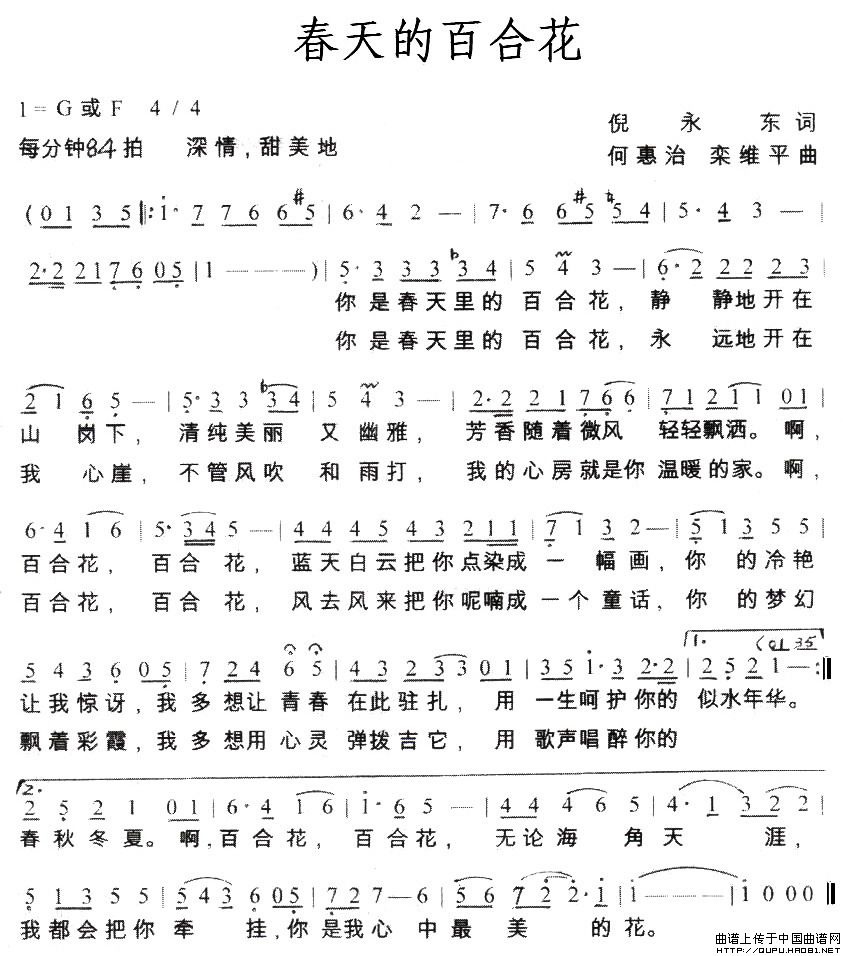 春天的百合花
1=G或F 4/4
倪永东词
每分钟84拍 深情,甜美地
何惠治 栾维平曲
(0 1 3 5 ‖: i· 7 7 6 6 #5 | 6· 4 2 — | 7· 6 6 #5 ♮5 4 | 5· 4 3 — |
2· 2 2 2 1 7 6 0 5 | 1 — — — ) | 5· 3 3 3 ♭3 4 | 5 4 3 — | 6· 2 2 2 2 3 |
你是春天里的 百合花, 静 静地开在
你是春天里的 百合花, 永 远地开在
2 1 6 5 — | 5· 3 3 ♭3 4 | 5 4 3 — | 2· 2 2 2 1 7 6 6 | 7 1 2 1 1 0 1 |
山 岗下, 清纯美丽 又 幽雅, 芳香随着微风 轻轻飘洒。啊,
我 心崖, 不管风吹 和 雨打, 我的心房就是你 温暖的家。啊,
6· 4 1 6 | 5· 3 4 5 — | 4 4 4 5 4 3 2 1 1 | 7 1 3 2 — | 5 1 3 5 5 |
百合花, 百合 花, 蓝天白云把你点染成 一 幅画, 你 的冷艳
百合花, 百合 花, 风去风来把你呢喃成 一个童话, 你 的梦幻
5 4 3 6 0 5 | 7 2 4 6 5 | 4 3 2 3 3 0 1 | 3 5 i· 3 2· 2 | 1. 2 5 2 1 — (01 35 :‖
让我惊讶, 我多想让 青春 在此驻扎, 用 一生呵护你的 似水年华。
飘着彩霞, 我多想用 心灵 弹拨吉它, 用 歌声唱醉你的
2. 2 5 2 1 0 1 | 6· 4 1 6 | i· 6 5 — | 4 4 4 6 5 | 4· 1 3 2 2 |
春秋冬夏。啊,百合花, 百合花, 无论海 角天 涯,
5 1 3 5 5 | 5 4 3 6 0 5 | 7 2 7 7 — 6 | 5 6 7 2 2· i | i — — — | i 0 0 0 ‖
我都会把你 牵 挂,你是我心 中最 美 的花。
曲谱上传于中国曲谱网
http://QUPU.HAO81.NET